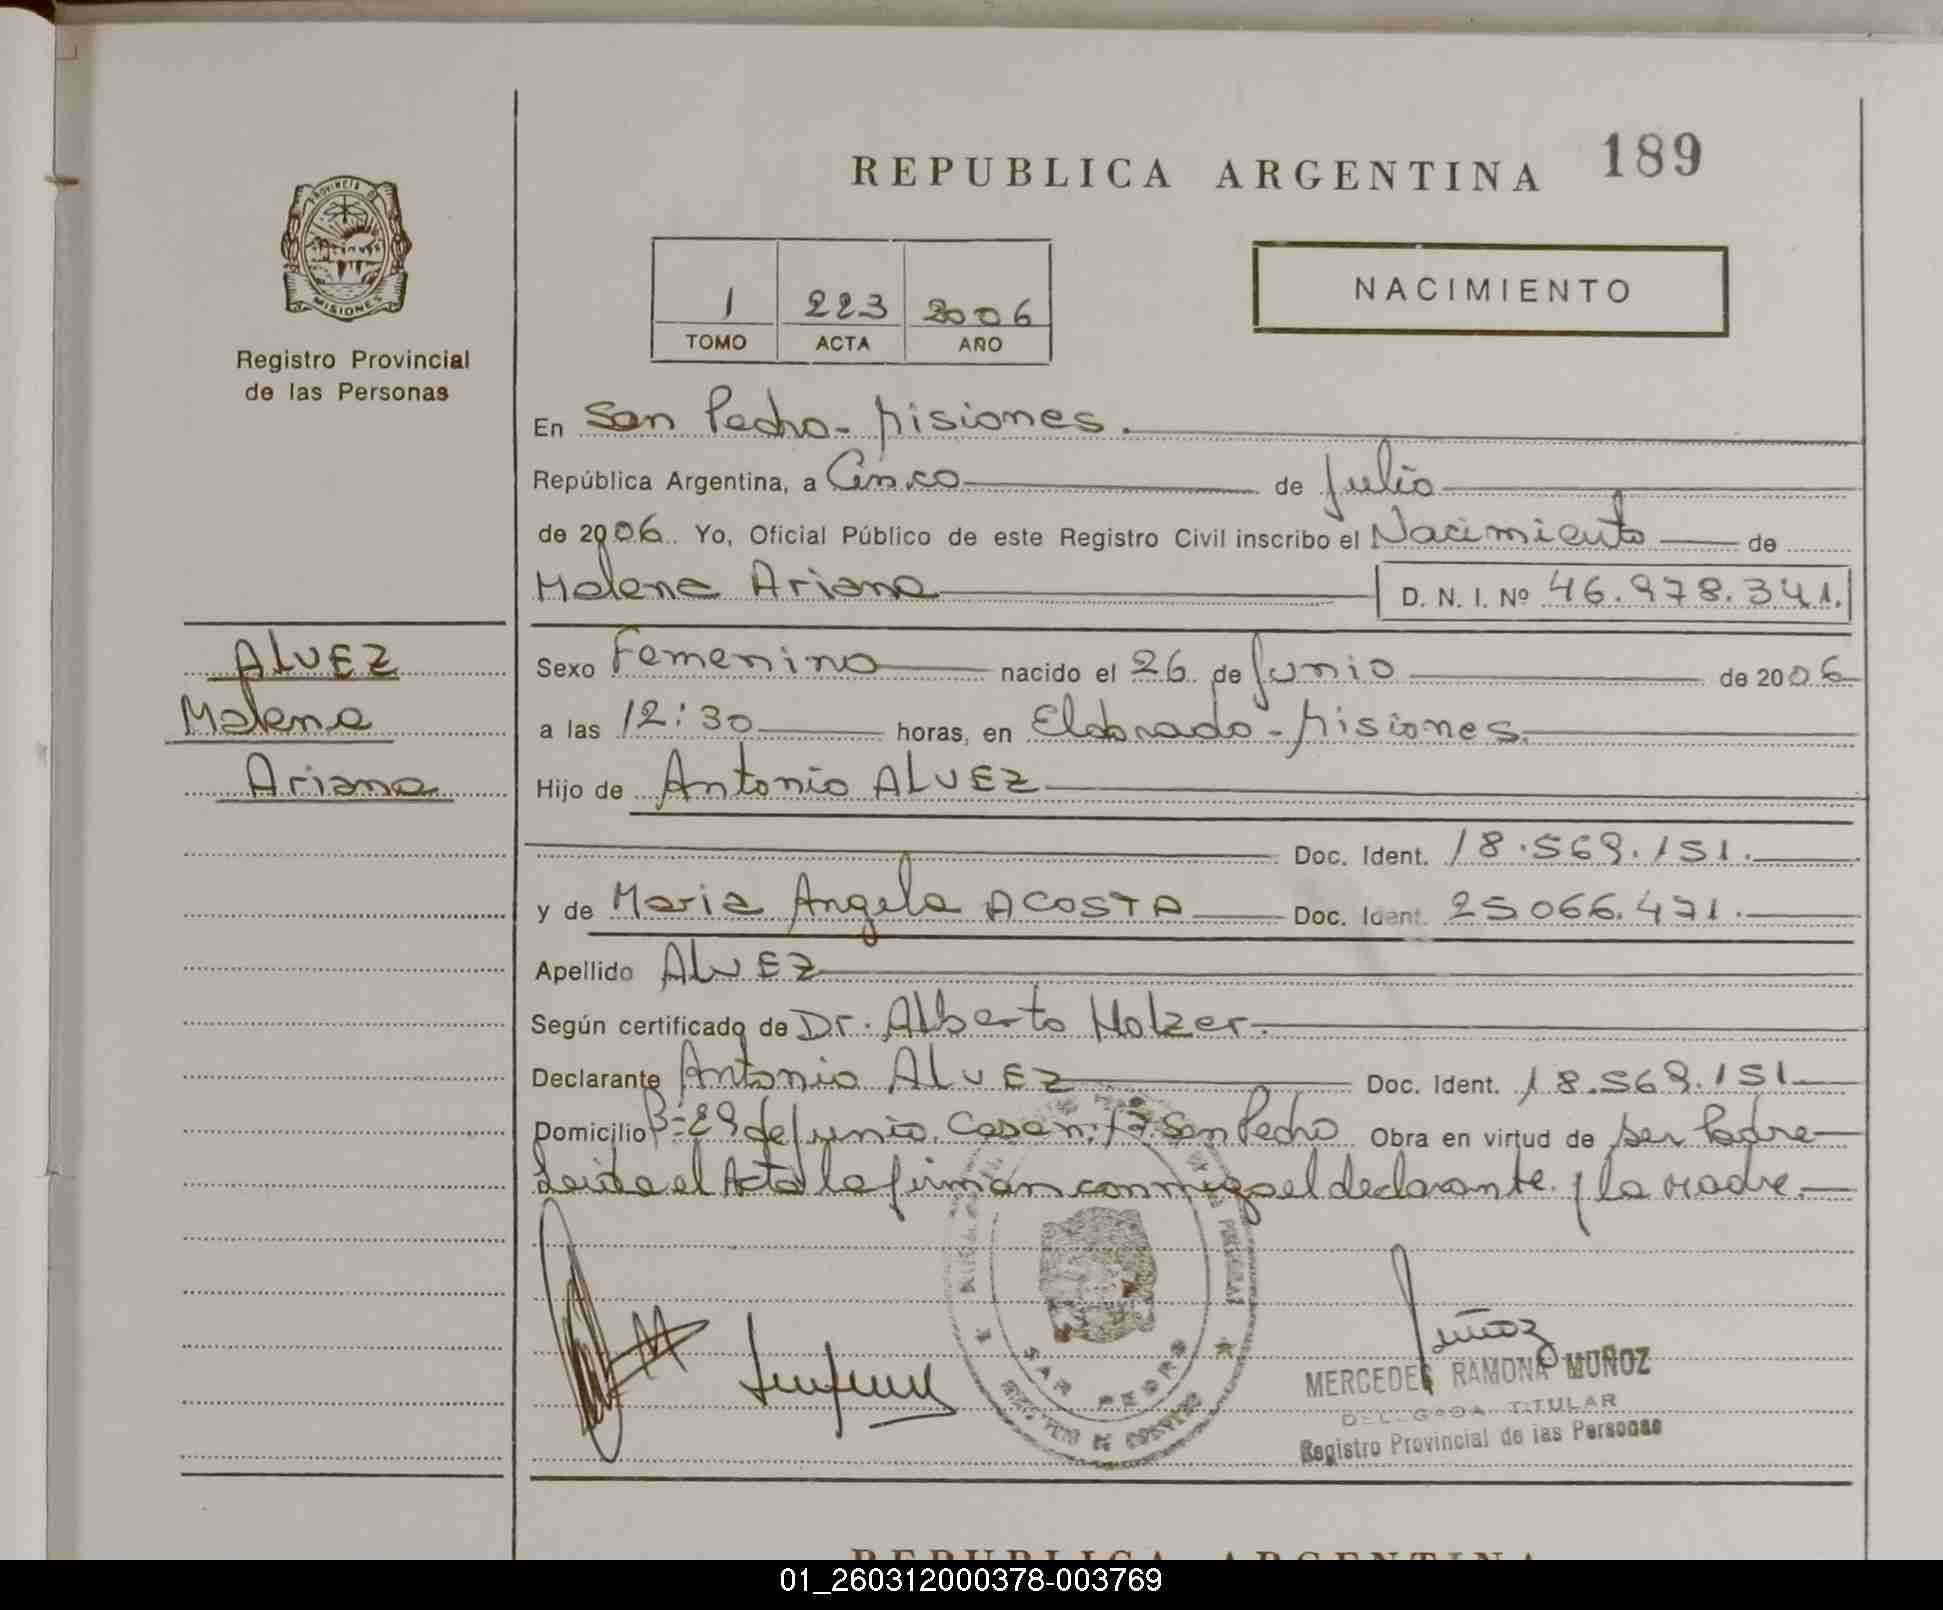 REPUBLICA ARGENTINA 189
PROVINCIA DE
MISIONES
Registro Provincial
de las Personas
1 223 2006
TOMO ACTA AÑO
NACIMIENTO
En San Pedro - Misiones.
República Argentina, a Cinco de Julio
de 2006. Yo, Oficial Público de este Registro Civil inscribo el Nacimiento de
Malena Ariana D. N. I. Nº 46.978.341.
ALVEZ
Malena
Ariana
Sexo Femenino nacido el 26 de Junio de 2006
a las 12:30 horas, en Eldorado - Misiones.
Hijo de Antonio ALVEZ
Doc. Ident. 18.569.151.
y de Maria Angela ACOSTA Doc. Ident. 25.066.471.
Apellido ALVEZ
Según certificado de Dr. Alberto Holzer.
Declarante Antonio ALVEZ Doc. Ident. 18.569.151
Domicilio Bº 29 de junio. Casa n: 17. San Pedro Obra en virtud de ser Padre
Leida el Acta la firman conmigo el declarante y la Madre.
SAN PEDRO
Muñoz
MERCEDES RAMONA MUÑOZ
DELEGADA TITULAR
Registro Provincial de las Personas
REPUBLICA ARGENTINA
01_260312000378-003769